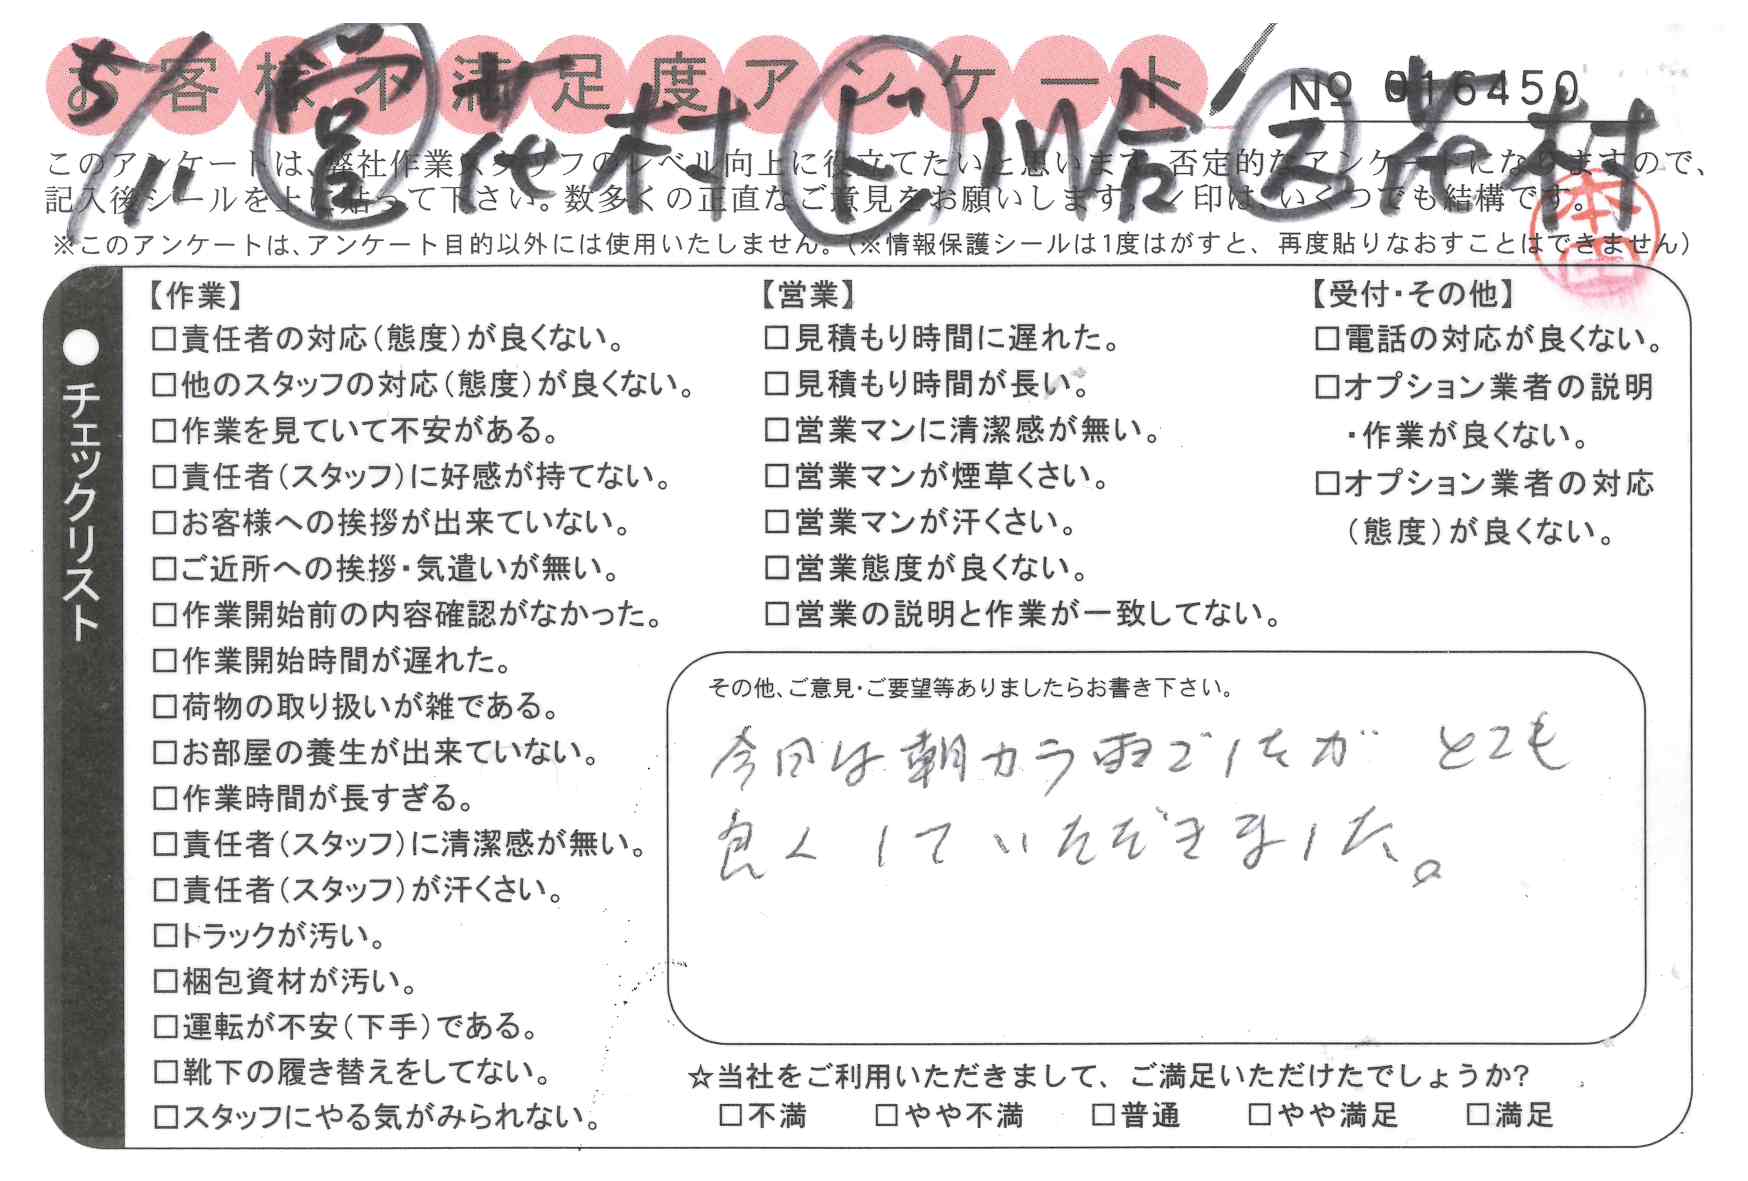 お客様不満足度アンケート
No 016450
5/11 営 花村 ビ 川合 ヱ 花村
このアンケートは、弊社作業スタッフのレベル向上に役立てたいと思います。否定的なアンケートになりますので、
記入後シールを上に貼って下さい。数多くの正直なご意見をお願いします。✓印は、いくつでも結構です。
※このアンケートは、アンケート目的以外には使用いたしません。(※情報保護シールは1度はがすと、再度貼りなおすことはできません)
●チェックリスト
【作業】
□責任者の対応(態度)が良くない。
□他のスタッフの対応(態度)が良くない。
□作業を見ていて不安がある。
□責任者(スタッフ)に好感が持てない。
□お客様への挨拶が出来ていない。
□ご近所への挨拶・気遣いが無い。
□作業開始前の内容確認がなかった。
□作業開始時間が遅れた。
□荷物の取り扱いが雑である。
□お部屋の養生が出来ていない。
□作業時間が長すぎる。
□責任者(スタッフ)に清潔感が無い。
□責任者(スタッフ)が汗くさい。
□トラックが汚い。
□梱包資材が汚い。
□運転が不安(下手)である。
□靴下の履き替えをしてない。
□スタッフにやる気がみられない。
【営業】
□見積もり時間に遅れた。
□見積もり時間が長い。
□営業マンに清潔感が無い。
□営業マンが煙草くさい。
□営業マンが汗くさい。
□営業態度が良くない。
□営業の説明と作業が一致してない。
【受付・その他】
□電話の対応が良くない。
□オプション業者の説明
・作業が良くない。
□オプション業者の対応
(態度)が良くない。
その他、ご意見・ご要望等ありましたらお書き下さい。
今日は朝カラ雨でしたが とても
良くしていただきました。
☆当社をご利用いただきまして、ご満足いただけたでしょうか?
□不満 □やや不満 □普通 □やや満足 □満足